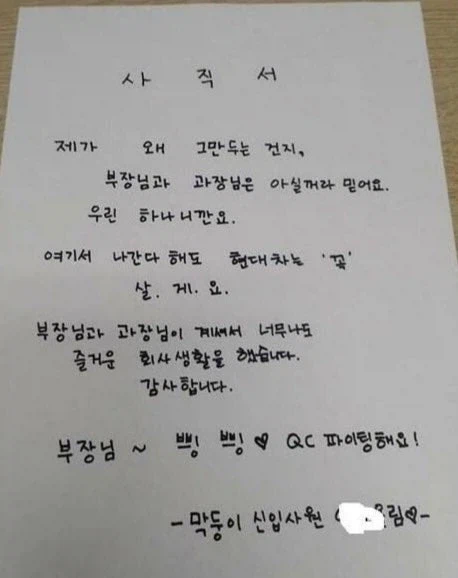 사 직 서
제가 왜 그만두는 건지,
부장님과 과장님은 아실꺼라 믿어요.
우린 하나니깐요.
여기서 나간다 해도 현대차는 '꼭'
살. 게. 요.
부장님과 과장님이 계셔서 너무나도
즐거운 회사생활을 했습니다.
감사합니다.
부장님 ~ 쁘잉 쁘잉♡ QC 파이팅해요!
- 막둥이 신입사원 림♡-